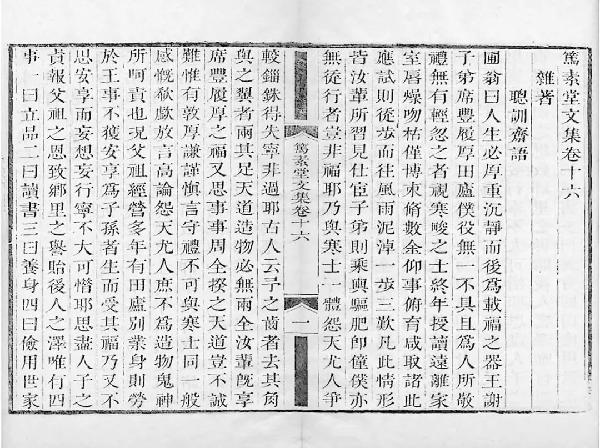 篤素堂文集卷十六
雜著
聰訓齋語
圃翁曰人生必厚重沉靜而後為載福之器王謝
子弟席豐履厚田廬僕役無一不具且為人所敬
禮無有輕忽之者視寒畯之士終年授讀遠離家
室唇燥吻枯僅博束脩數金仰事俯育咸取諸此
應試則徒步而往風雨泥淖一步三歎凡此情形
皆汝輩所習見仕宦子弟則乘輿驅肥即僮僕亦
無徒行者豈非福耶乃與寒士一體怨天尤人爭
篤素堂文集卷十六
一
較錙銖得失寧非過耶古人云予之齒者去其角
與之翼者兩其足天道造物必無兩全汝輩既享
席豐履厚之福又思事事周全揆之天道豈不誠
難惟有敦厚謙謹慎言守禮不可與寒士同一般
感慨欷歔放言高論怨天尤人庶不為造物鬼神
所呵責也況父祖經營多年有田廬別業身則勞
於王事不獲安享為子孫者生而受其福乃又不
思安享而妄想妄行寧不大可惜耶思盡人子之
責報父祖之恩致鄉里之譽貽後人之澤唯有四
事一曰立品二曰讀書三曰養身四曰儉用世家